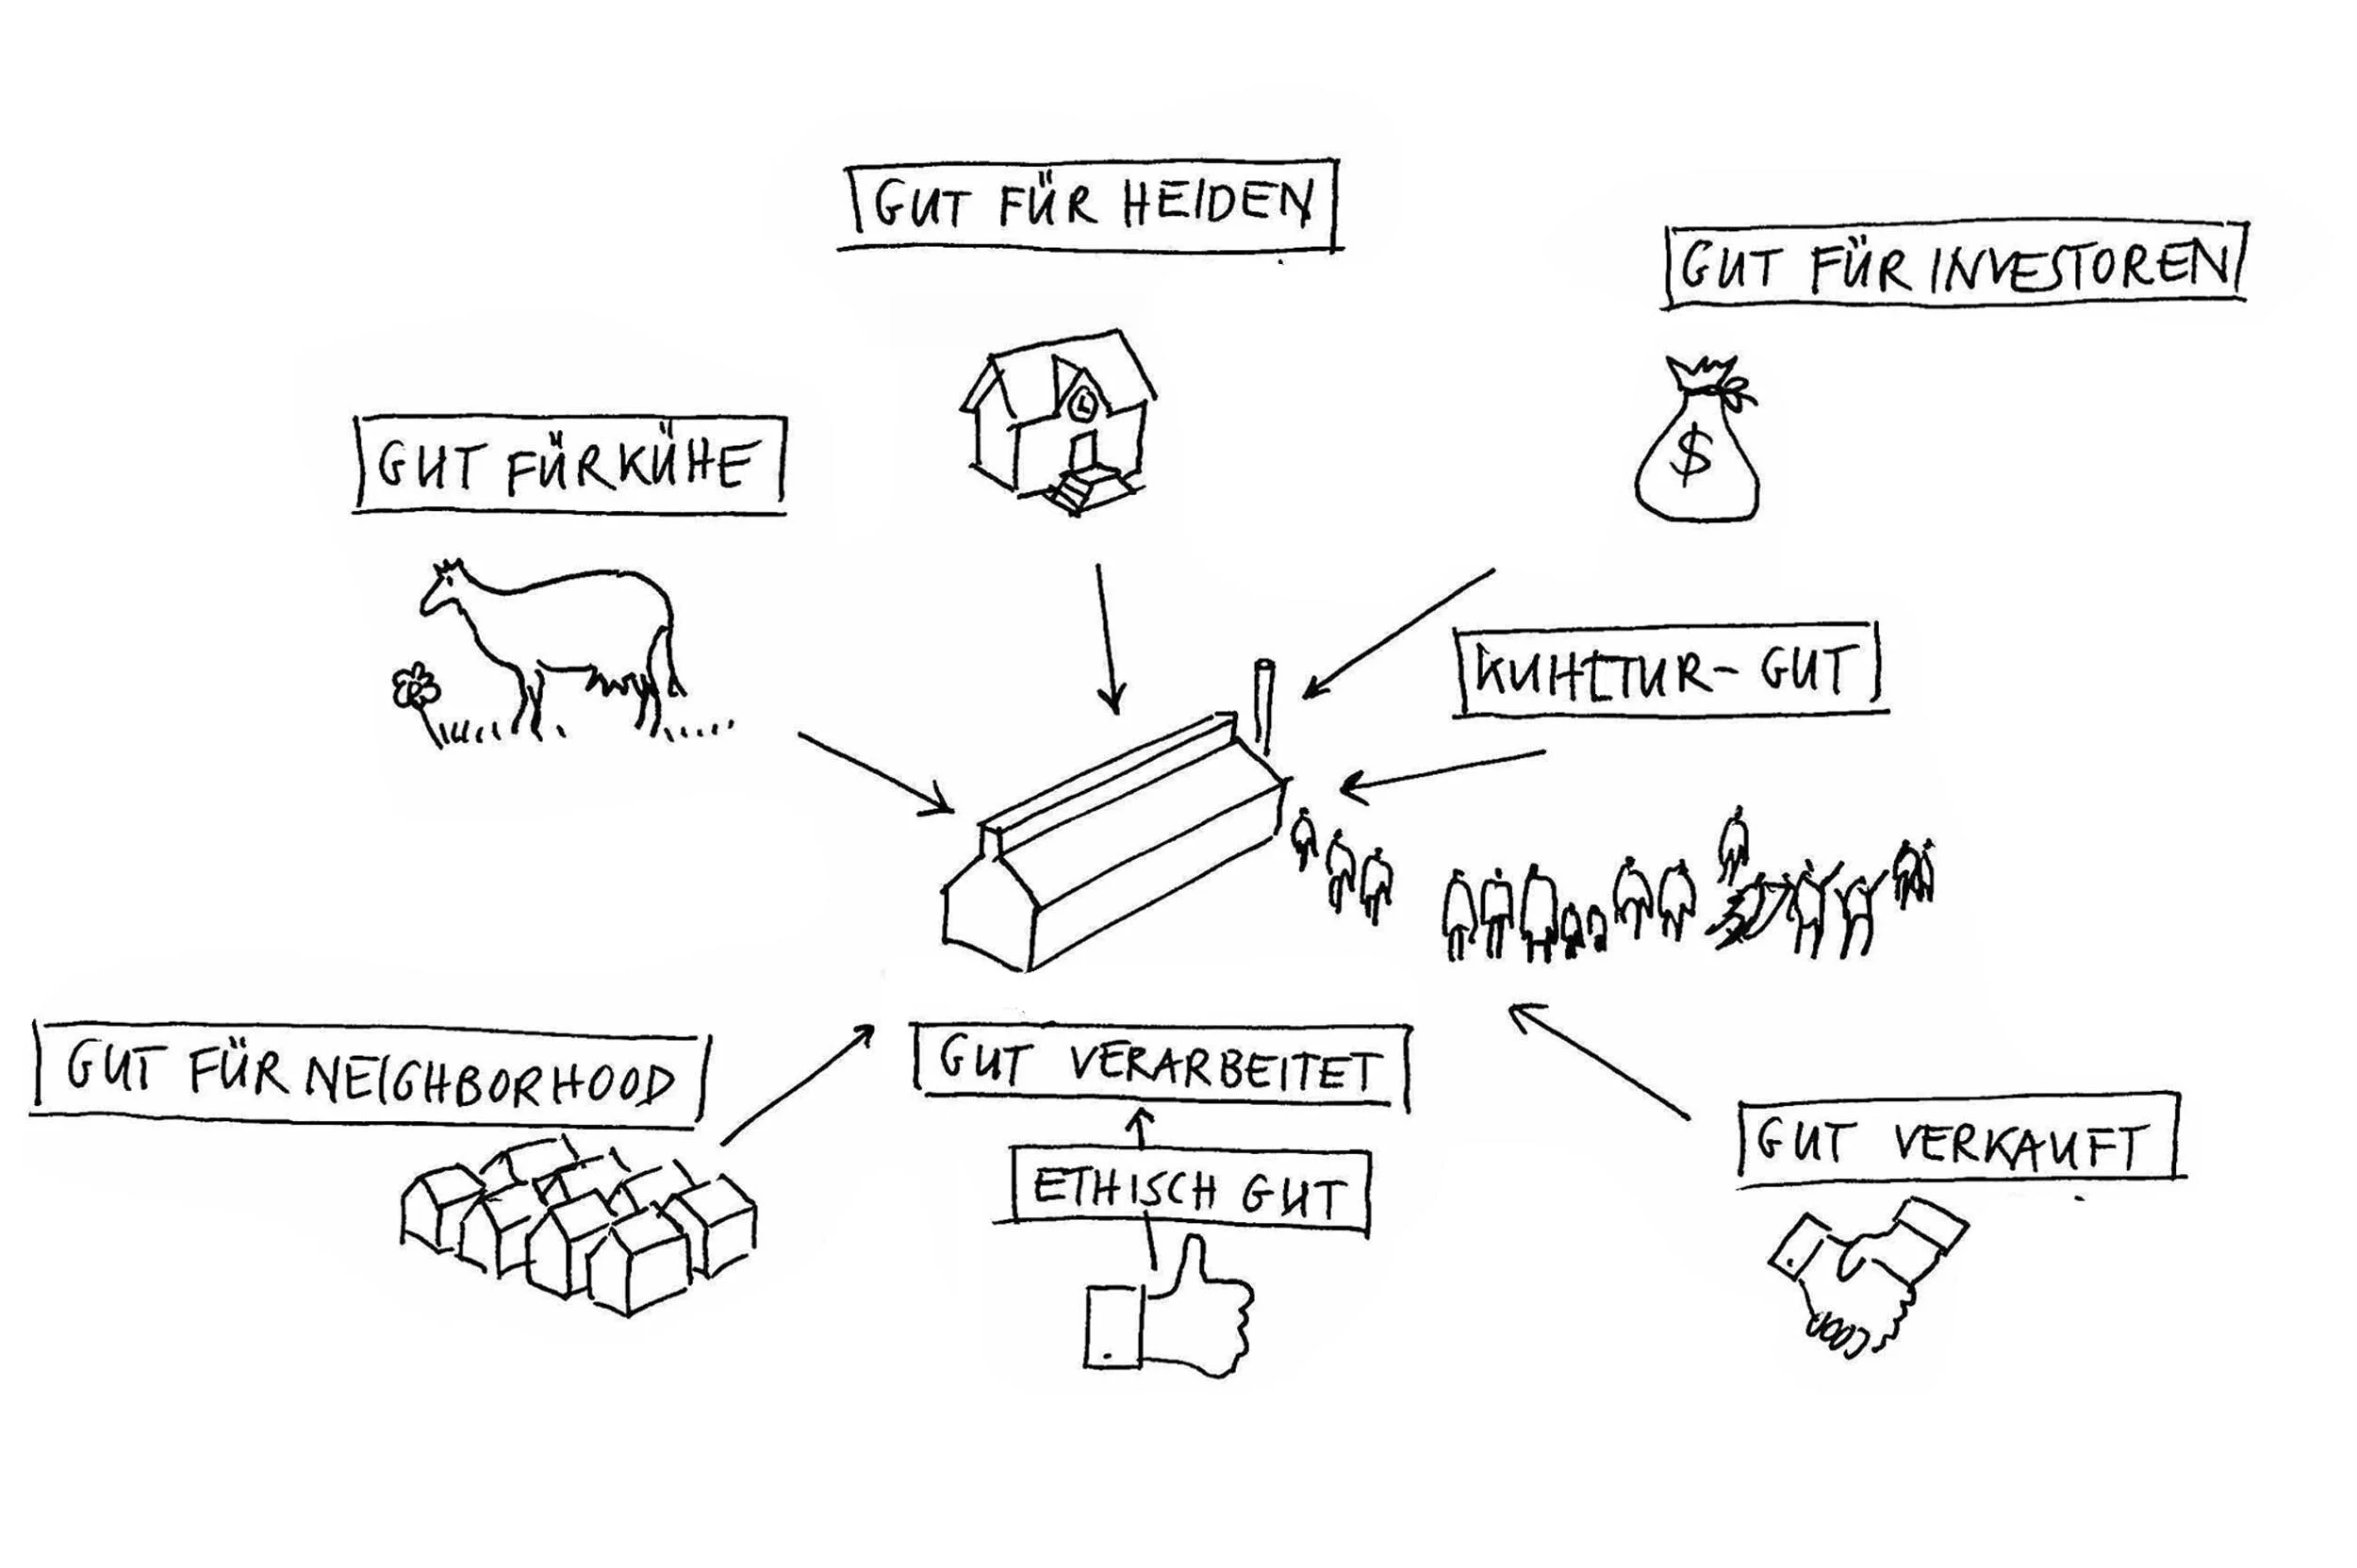 GUT FÜR HEIDEN
GUT FÜR INVESTOREN
GUT FÜR KÜHE
$
KUHLTUR-GUT
GUT FÜR NEIGHBORHOOD
GUT VERARBEITET
ETHISCH GUT
GUT VERKAUFT